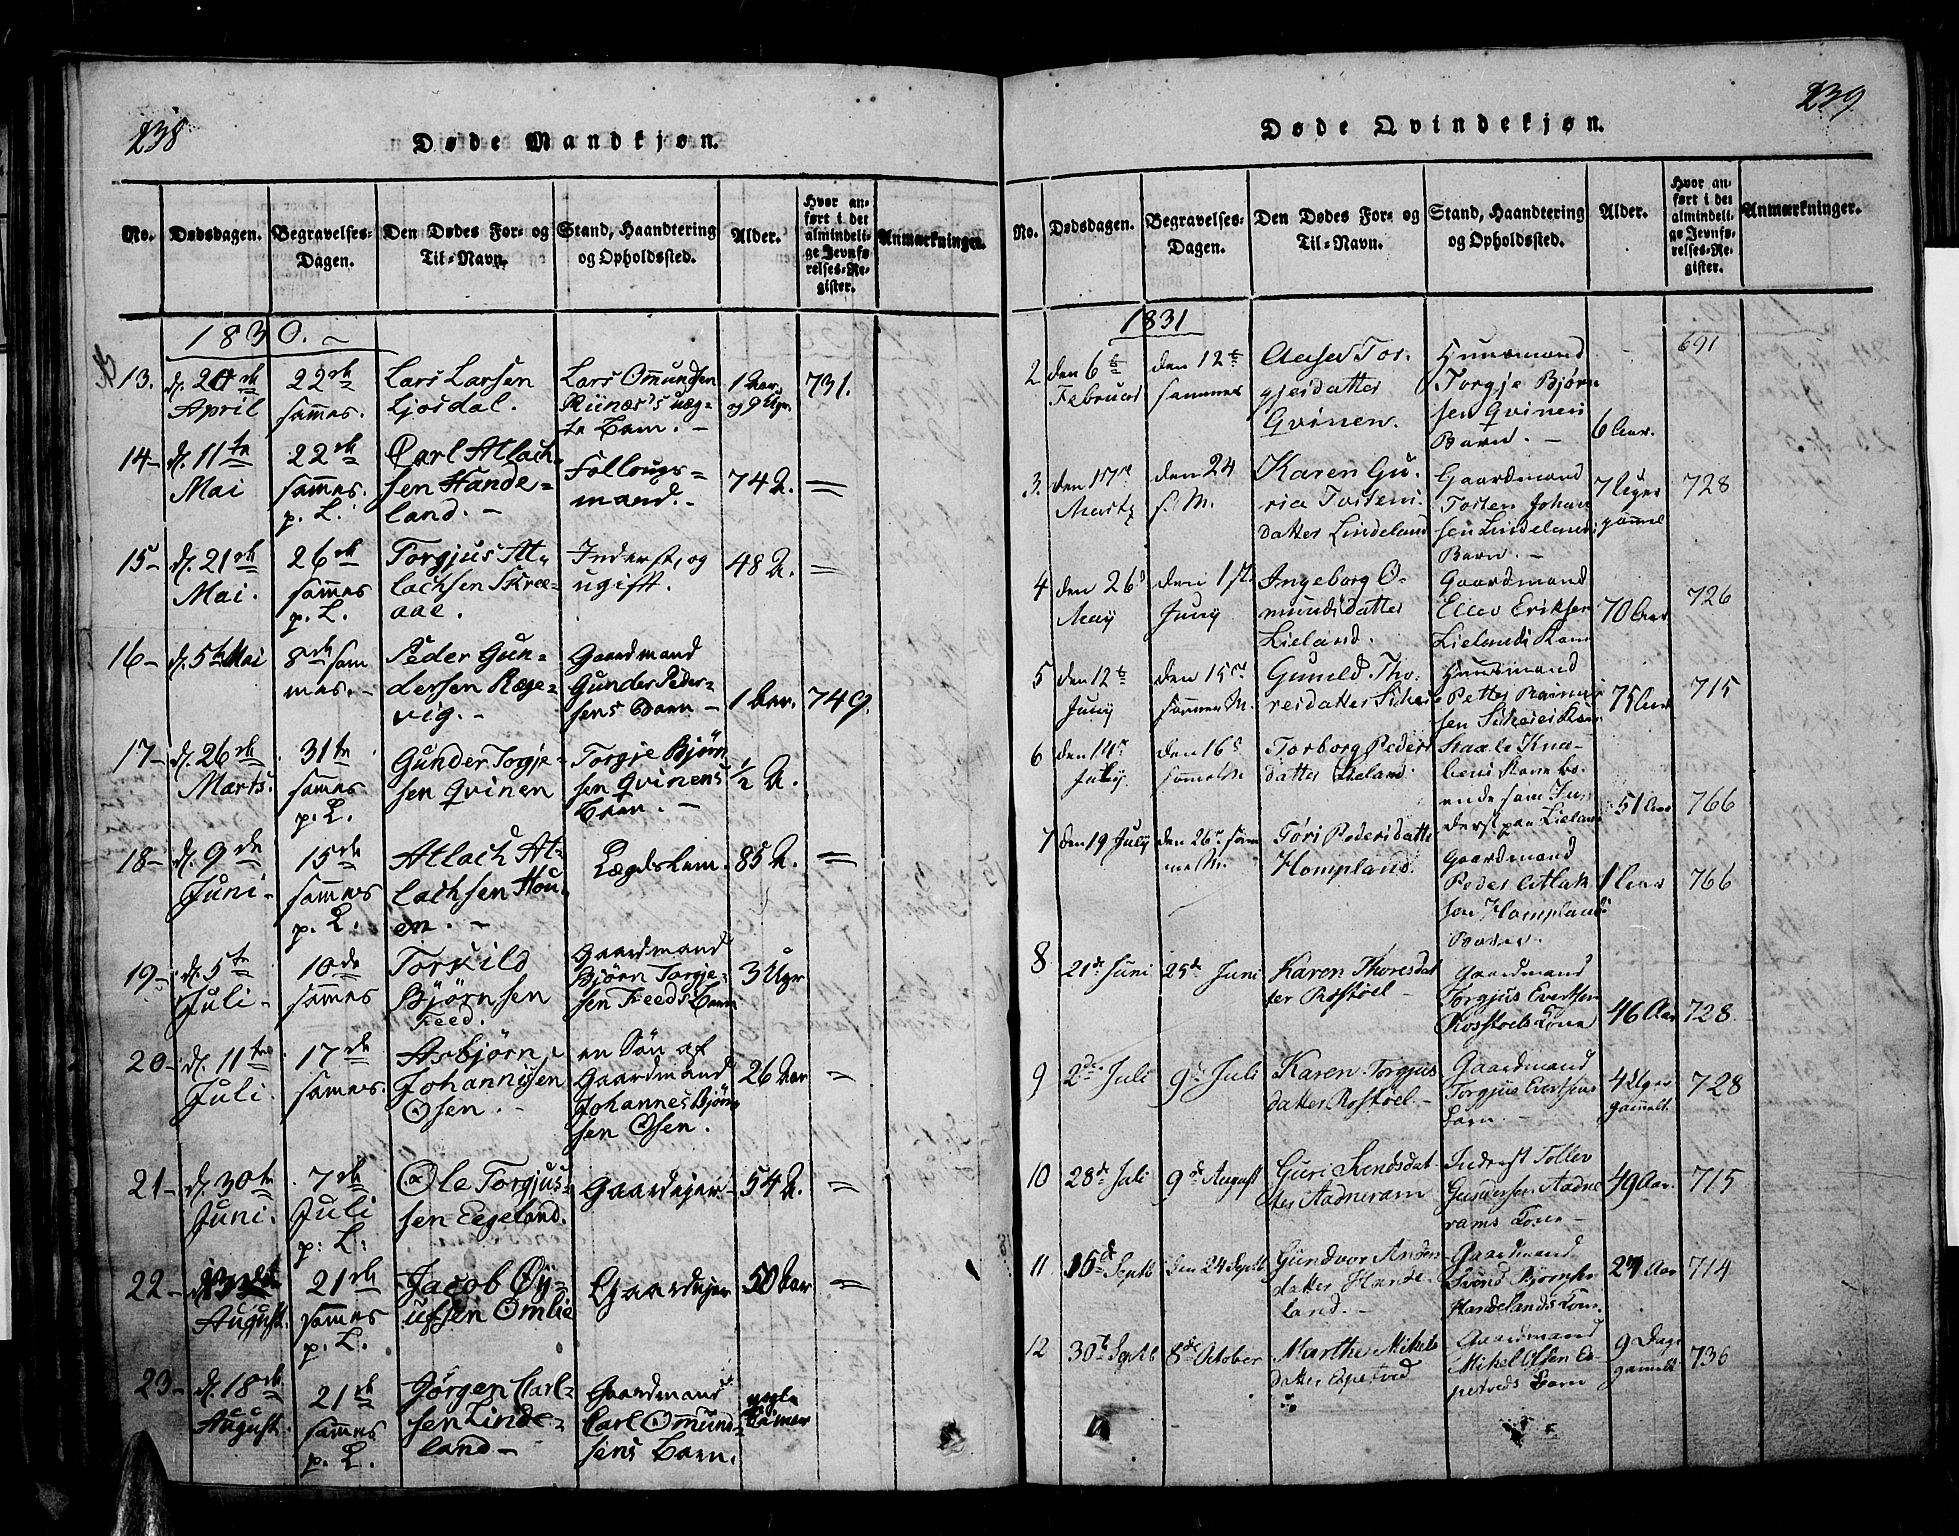 238
Døde Mandkjøn.
No.
Dødsdagen.
Begravelses-
Dagen.
Den Dødes For- og
Til-Navn.
Stand, Haandtering
og Opholdssted.
Alder.
Hvor an-
ført i det
almindeli-
ge Jevnfø-
relses-Re-
gister.
Anmærkninger.
1830.
13.
d. 20de
April
22de
sammes.
Lars Larsen
Ljosdal.
Lars Omundsen
1 Aar
731.
14-
d. 11te
Mai
22de
sammes.
p. L.
Carl Atlach-
sen Hande-
land.
Follougs-
mand.-
74 A.
=
15-
d. 21de
Mai.
26de
sammes
p. L.
Torgjus At-
lachsen Skree-
aae.
Inderst, og
ugift.
48 A.
=
16-
d. 5te Mai
8de sam
mes.-
Peder Gun-
dersen Ræge-
vig.-
Gaardmand
Gunder Peder-
sens Barn-
1 Aar.
749.
17-
d. 26de
Marts.
31te
sammes
p. L.
Gunder Torgje-
sen Qvinen
Torgje Bjørn
sen Qvinens
Barn.-
½ A.
18-
d. 9de
Juni-
15de
sammes
p. L.
Atlach At-
lachsen Hou-
en.-
Lægdslem.
85 A.
=
19-
d. 5te
Juli-
10de
sammes
Torkild
Bjørnsen
Feed.
Gaardmand
Bjørn Torgje-
sen Feeds Barn
3 Uger
20-
d. 11te
Juli.
17de
sammes.
Asbjørn
Johannesen
Osen.-
en Søn af
Gaardmand
Johannes Bjørn
sen Osen.
26 Aar
=
21-
d. 30te
Juni.
7de
Juli
p. L.
Ole Torgjus-
sen Eegeland.
Gaardejer-
54 A.
=
22-
August.
21de
sammes
p. L.
Jacob Øy-
ufsen Omlie
Gaardejer
50 Aar
=
23-
d. 18de
August.
21de
sammes
p. L.
Jørgen Carl-
sen Linde-
land-
Gaardmand
Carl Omund-
sens Barn.
nogle
Timer
239
Døde Qvindekjøn.
No.
Dødsdagen.
Begravelses-
Dagen.
Den Dødes For- og
Til-Navn.
Stand, Haandtering
og Opholdssted.
Alder.
Hvor an-
ført i det
almindeli-
ge Jevnfø-
relses-Re-
gister.
Anmærkninger.
1831
2
den 6te
Februar
den 12te
sammes
Aaser Tor-
gjesdatter
Qvinen.
Huusmand
Torgje Bjørn
sen Qvinens
Barn.-
6 Aar.
691
3.
den 17de
Martz
den 24
s. M.
Karen Gu-
ria Tostens
datter Lindeland
Gaardmand
Tosten Johan
sen Lindelands
Barn.-
7 Uger
gammel
728
4
den 26d
May
den 1ste
Juny
Ingeborg O-
mundsdatter
Lieland.
Gaardmand
Ellev Eriksen
Lielands Kone
70 Aar
726
5
den 12te
Juny
den 15de
samme M.
Gunild Tho-
resdatter
Huusmand
75 Aar
715
6
den 14de
July.
den 16d
samme M.
Torborg Peders
datter Lieland.
51 Aar
766
7
den 19 July
den 26de sam
me M.
Tøri Pedersdatte
Hompland.
Gaardmand
Peder Atlak
sen Homplands
1 Aar
766
8
21de Juni
25de Juni
Karen Thoresdat
ter Rosstøel-
Gaardmand
Torgjus Evertsen
Rosstøels Kone
46 Aar
728.
9
2de Juli
9de Juli
Karen Torgjus
datter Rostøel-
Gaardmand
Torgjus Evertsens
Barn-
4 Uger
gammelt.
728
10
28de Juli
9de August
Guri Svendsdat
ter Aadneram
Inderst Tollev
Gundersen Aadne
rams Kone-
49 Aar.
715
11
Septb
den 24 Septb
Gundvor Anders
datter Hande-
land.-
Gaardmand
Svend Bjørnsen
Handelands Kone
714
12
30te Septb
8de October
Marthe Mikels
datter Espetved
Gaardmand
Mikel Olsen Es-
petveds Barn
9 Dage
gammelt
736